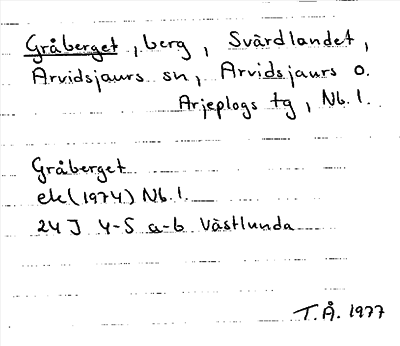 Gråberget, berg, Svärdlandet,
Arvidsjaurs sn, Arvidsjaurs o.
Arjeplogs tg, Nb. l.
Gråberget
ek (1974) Nb. l.
24 J 4-5 a-b Västlunda
T.Å. 1977